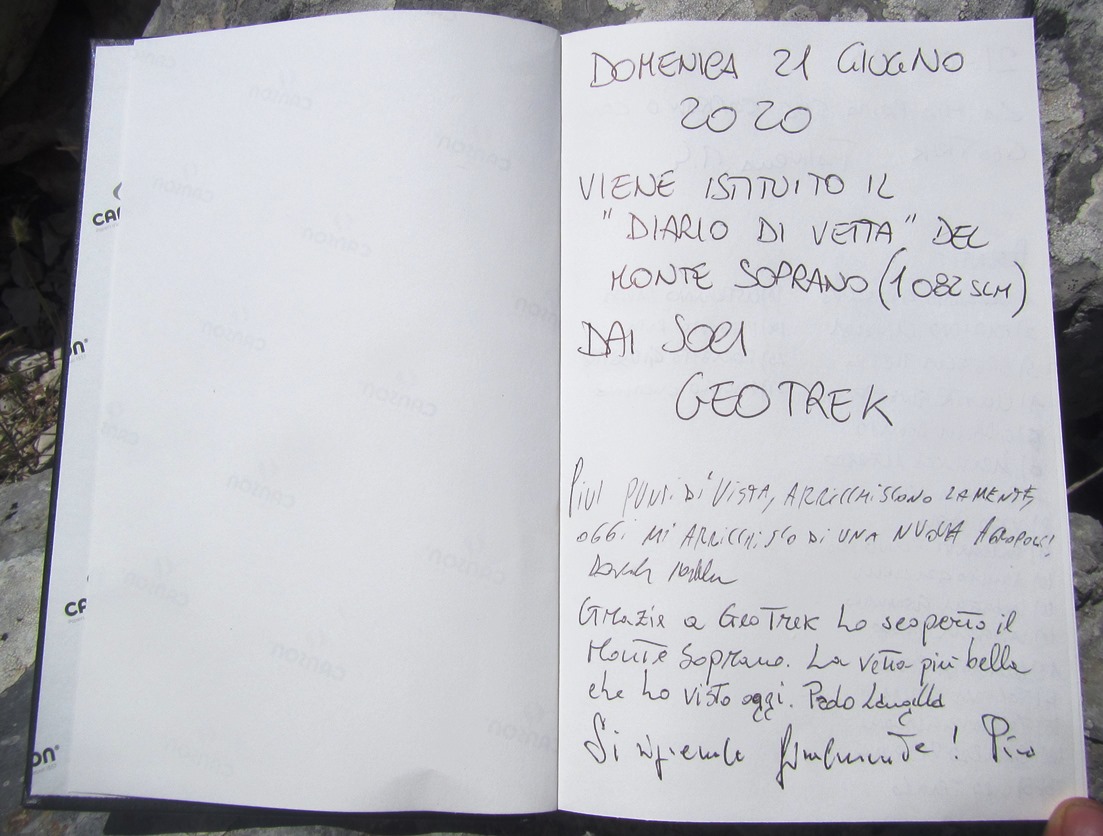 DOMENICA 21 GIUGNO
2020
VIENE ISTITUITO IL
"DIARIO DI VETTA" DEL
MONTE SOPRANO (1082 SLM)
DAI SOCI
GEOTREK
PIUI PUNTI DI VISTA, ARRICCHISCONO LA MENTE,
OGGI MI ARRICCHISCO DI UNA NUOVA AGROPOLI!
Grazie a GeoTrek ho scoperto il
Monte Soprano. La vetta più bella
che ho visto oggi. Paolo Langella
Si riprende finalmente! Pino
CANSON